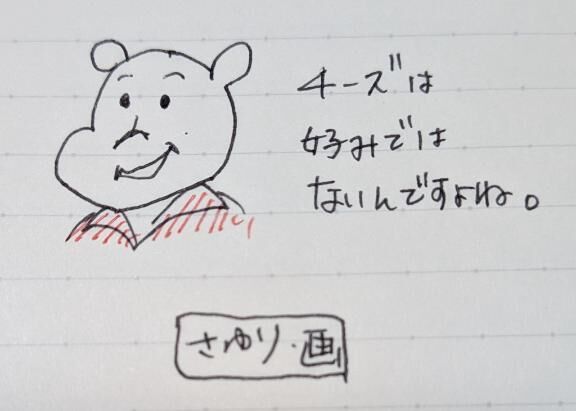 チーズは
好みでは
ないんですよね。
さゆり・画